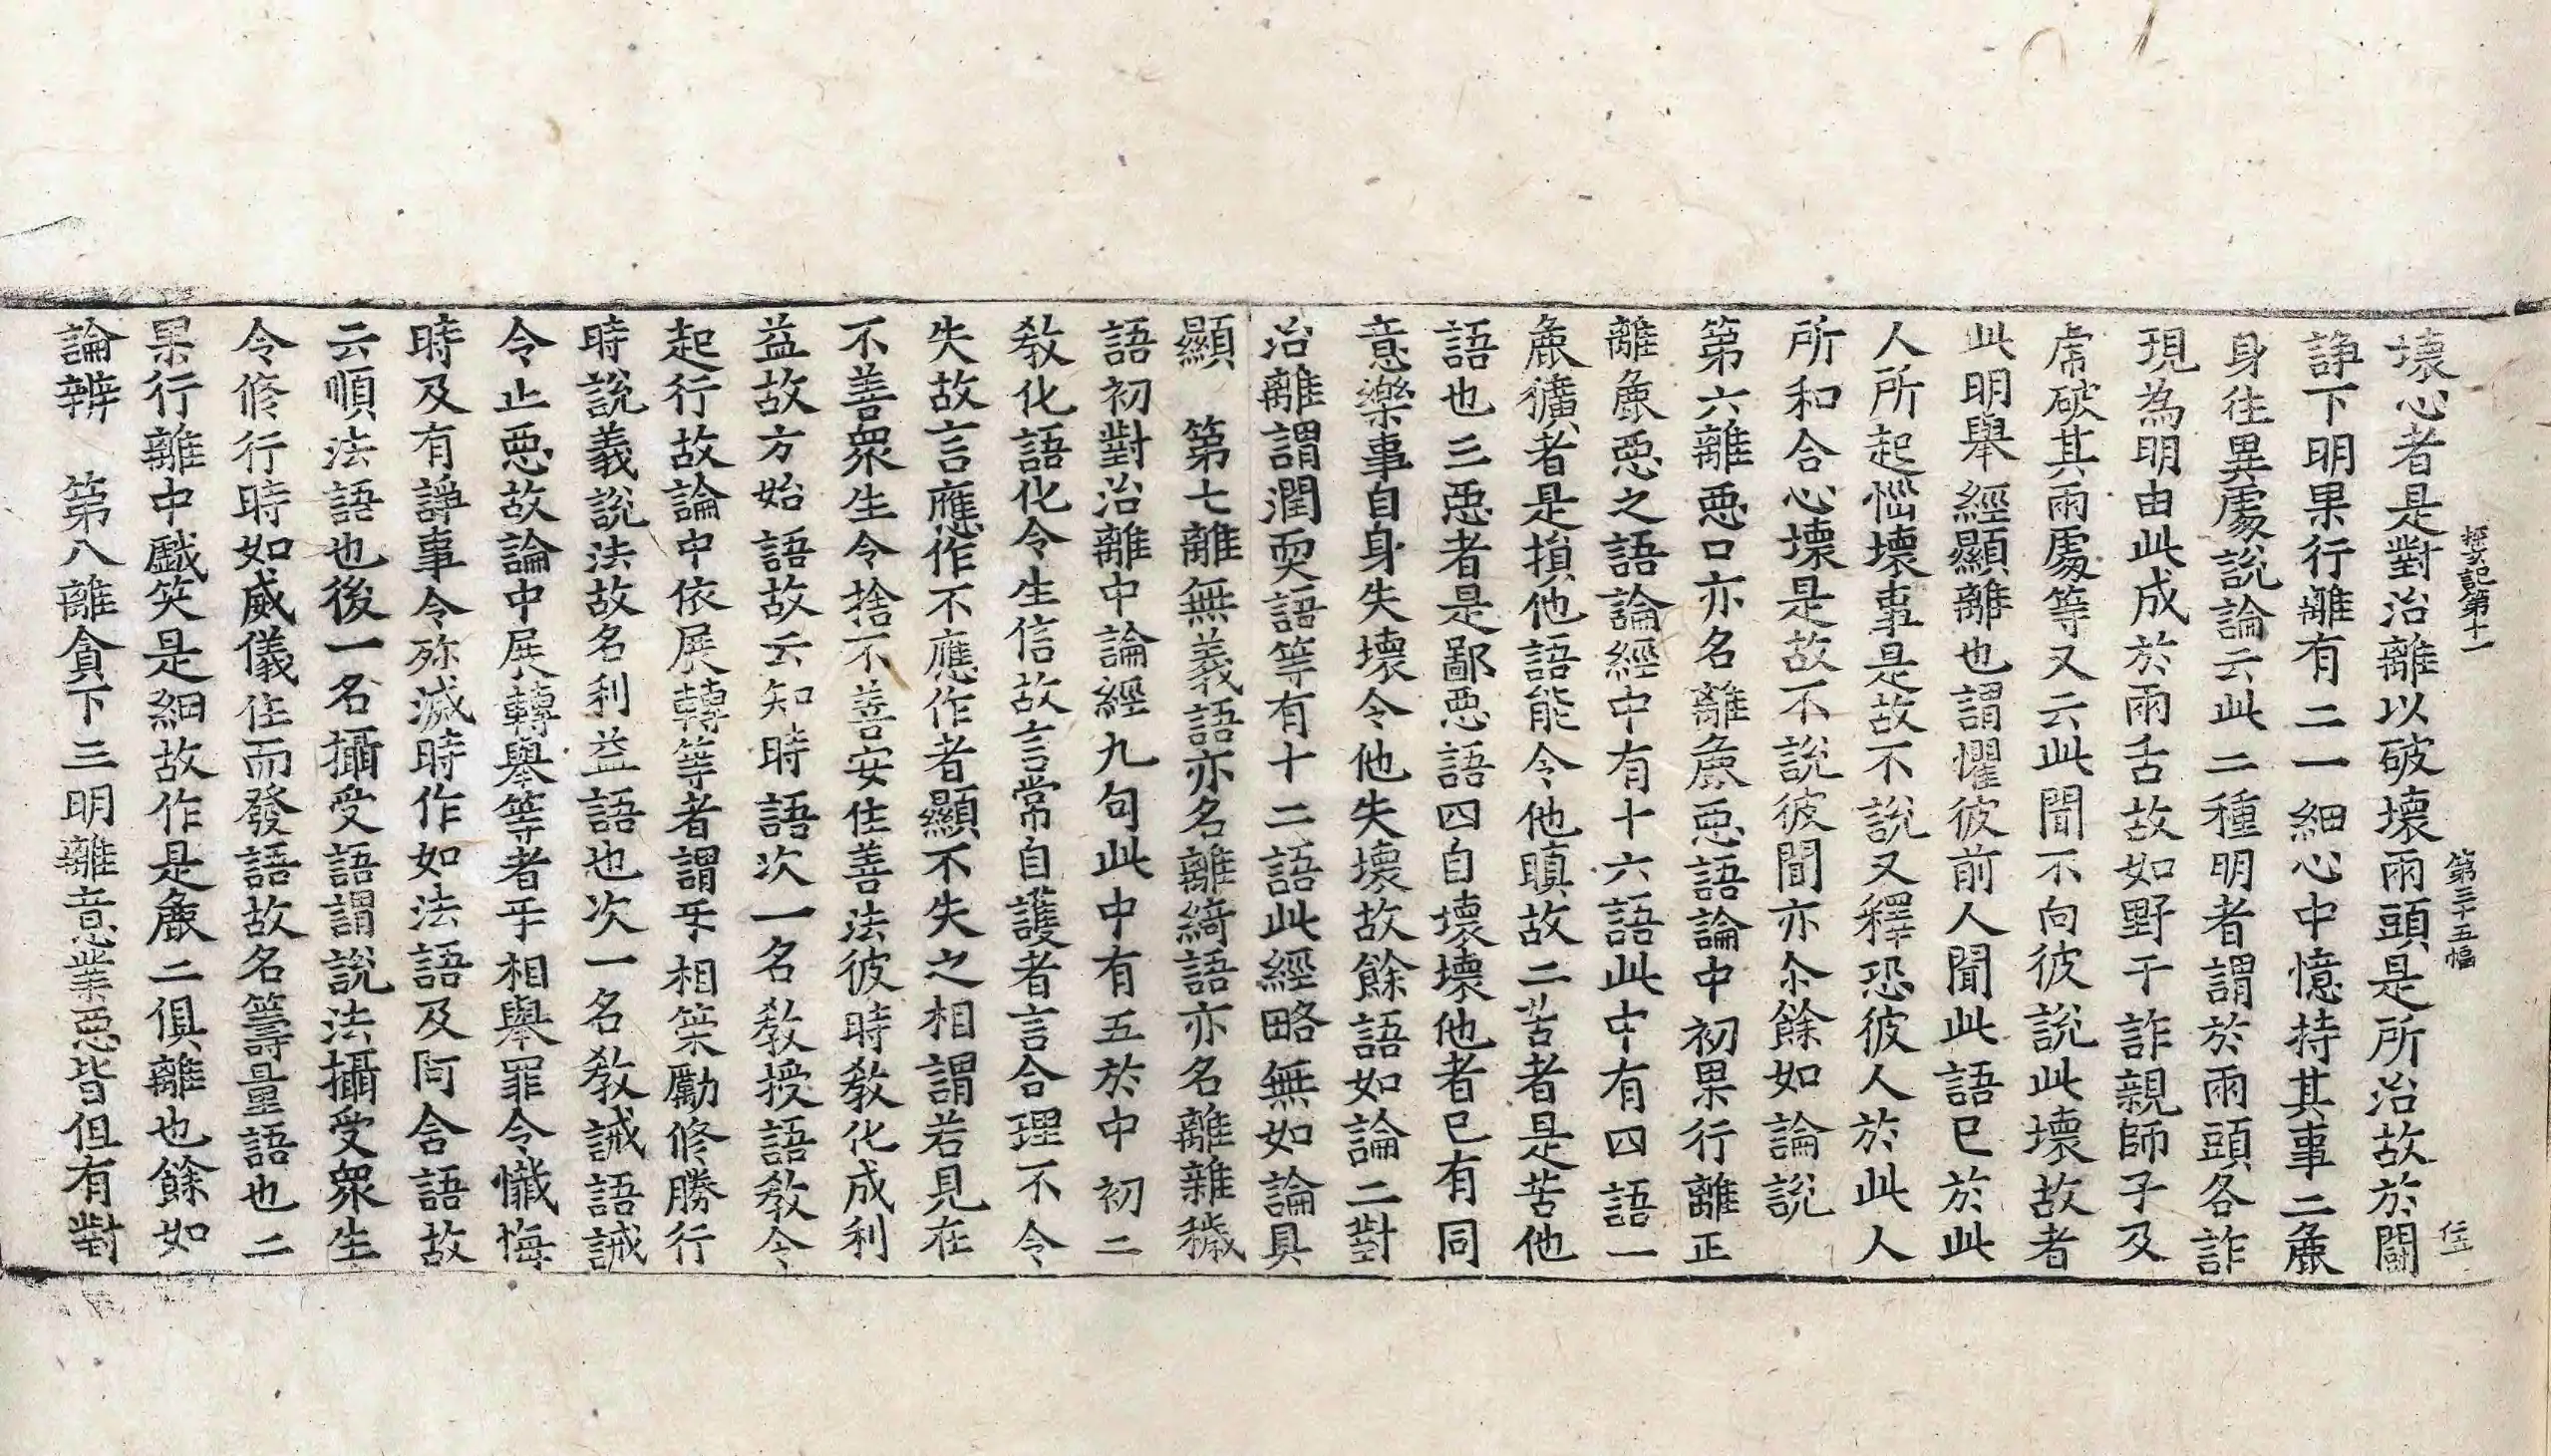 探玄記第十一　第三十五幅　任
壞心者是對治離以破壞兩頭是所治故於鬪
諍下明果行離有二一細心中憶持其事二麁
身往異處說論云此二種明者謂於兩頭各詐
現為明由此成於兩舌故如野干詐親師子及
虎破其兩處等又云此聞不向彼說此壞故者
此明舉經顯離也謂懼彼前人聞此語已於此
人所起惱壞事是故不說又釋恐彼人於此人
所和合心壞是故不說彼聞亦尒餘如論說
第六離惡口亦名離麁惡語論中初果行離正
離麁惡之語論經中有十六語此中有四語一
麁獷者是損他語能令他瞋故二苦者是苦他
語也三惡者是鄙惡語四自壞壞他者已有同
意樂事自身失壞令他失壞故餘語如論二對
治離謂潤耎語等有十二語此經略無如論具
顯　第七離無義語亦名離綺語亦名離雜穢
語初對治離中論經九句此中有五於中初二
教化語化令生信故言常自護者言合理不令
失故言應作不應作者顯不失之相謂若見在
不善眾生令捨不善安住善法彼時教化成利
益故方始語故云知時語次一名教授語教令
起行故論中依展轉等者謂㸦相䇿勵修勝行
時說義說法故名利益語也次一名教誡語誡
令止惡故論中展轉舉等者㸦相舉罪令懺悔
時及有諍事令殄滅時作如法語及阿含語故
云順法語也後一名攝受語謂說法攝受眾生
令修行時如威儀住而發語故名籌量語也二
果行離中戲笑是細故作是麁二俱離也餘如
論辨　第八離貪下三明離意業惡皆但有對